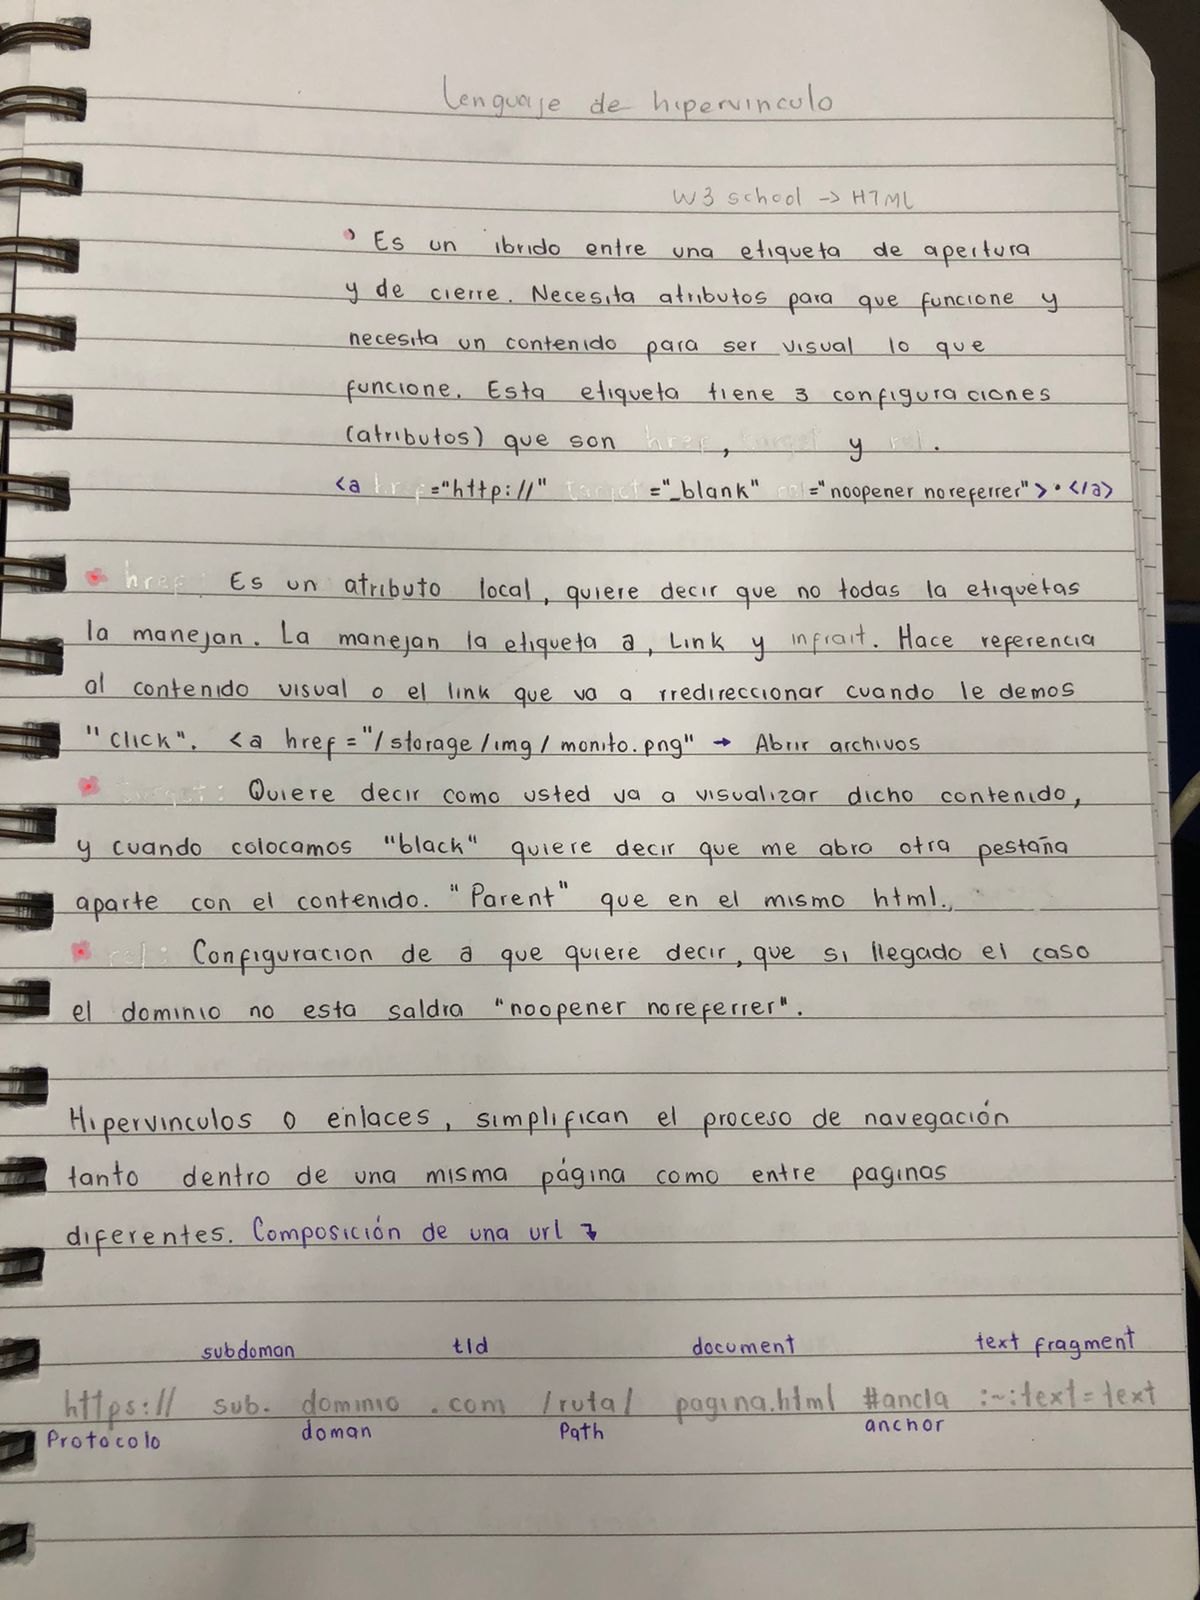 Lenguaje de hipervinculo
W3 school -> HTML
• Es un ibrido entre una etiqueta de apertura
y de cierre. Necesita atributos para que funcione y
necesita un contenido para ser visual lo que
funcione. Esta etiqueta tiene 3 configuraciones
(atributos) que son href, target y rel.
<a href="http://" target="_blank" rel="noopener noreferrer">•</a>
href: Es un atributo local, quiere decir que no todas la etiquetas
la manejan. La manejan la etiqueta a, Link y infrait. Hace referencia
al contenido visual o el link que va a rredireccionar cuando le demos
"click". <a href="/storage/img/monito.png" → Abrir archivos
target: Quiere decir como usted va a visualizar dicho contenido,
y cuando colocamos "black" quiere decir que me abra otra pestaña
aparte con el contenido. "Parent" que en el mismo html.
rel: Configuracion de a que quiere decir, que si llegado el caso
el dominio no esta saldra "noopener noreferrer".
Hipervinculos o enlaces, simplifican el proceso de navegación
tanto dentro de una misma página como entre paginas
diferentes. Composición de una url ↴
subdoman tld document text fragment
https:// sub. dominio .com /ruta/ pagina.html #ancla :~:text=text
Protocolo doman Path anchor